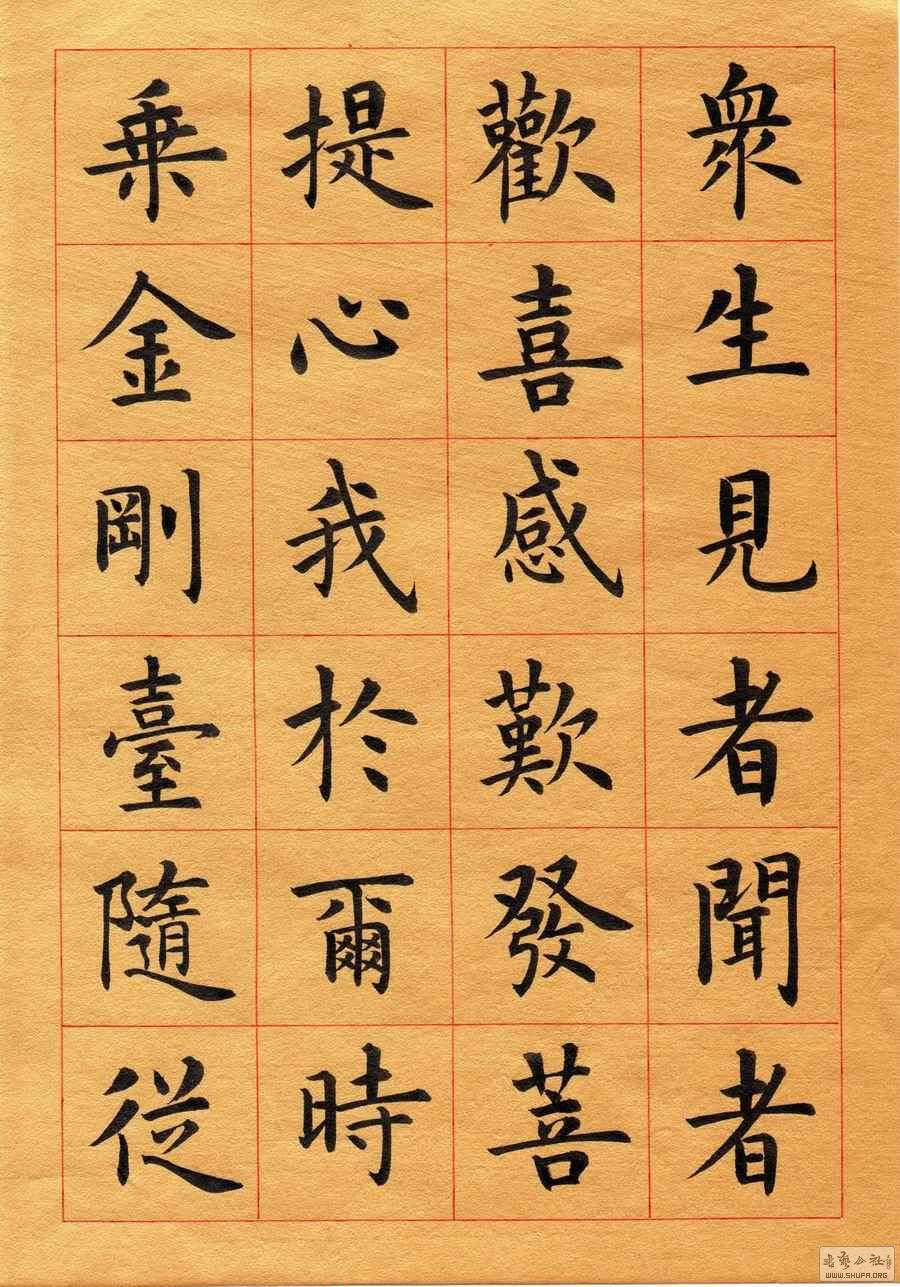 衆生見者聞者
歡喜感歎發菩
提心我於爾時
乗金剛臺隨從
WWW.SHUFA.ORG